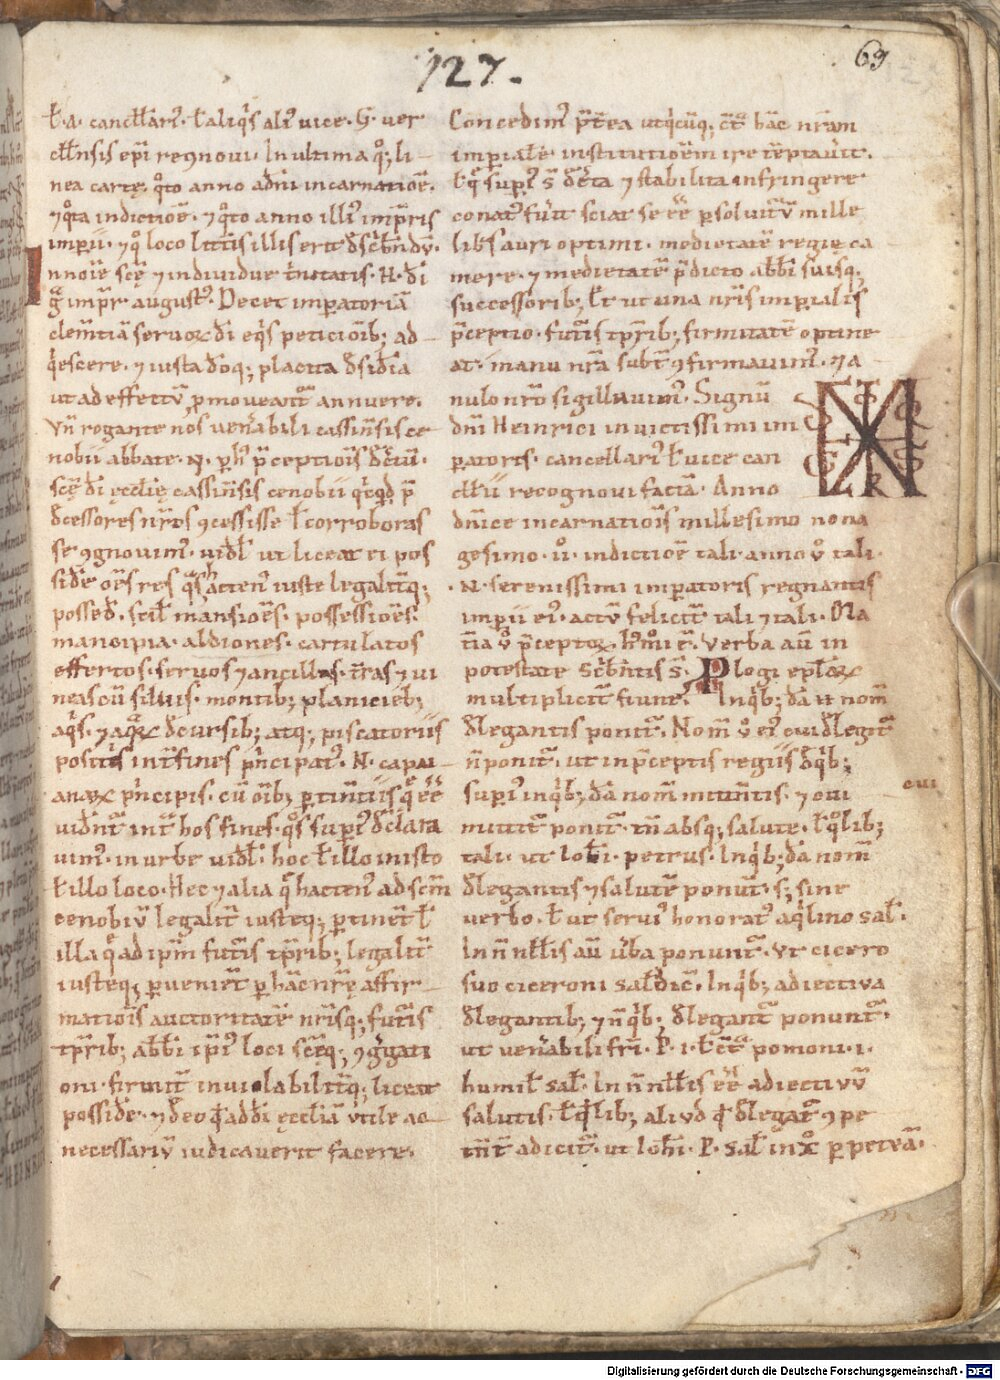 127.
69
ł.a. cancellari᷒. ł aliq̾s ali᷒ uice. G. ver
cłłnsis ep̅i recognoui. In ultima q̊; li-
nea cartę. q̊to anno adn̅i incarnatio̅e.
⁊ q̊ta indictio̅e. ⁊ q̊to anno illi᷒ imp̅ris
imp̅ii. ⁊ q̊ loco litt̅is illis erit
nno̅ie sc̅ę ⁊ indiuidue t̾nitatis. H. di̅
gr̅a imp̅r august᷒. Decet imp̅atoria̅
clem̅tia̅ seruoꝝ di̅ eq̾s peticio̅ib; ad-
q̾escere. ⁊ iusta
ut ad effectu̅ p̱moueant᷑ annuere.
Vn̅ rogante nos ven̅abili cassin̅sis ce
nobii abbate. N. p̱ h᷒ p̅ceptio̅is
sc̅ę di̅ ęccl̅ię cassin̅sis cenobii q̾cq̾d p̅
decessores nr̅os ꝯcessisse ł corroboras
se ꝯgnouim᷒. uidł ut liceat ei pos
side̅ om̅s res q̾s hacten᷒ iuste legalit̅q;
possed̅. scił mansio̅es. possessio̅es.
mancipia. aldiones. cartulatos
effertos. seruos ⁊ ancillas. t̅ras ⁊ ui
neas cu̅ siluis. montib; planicieb;
aq̾s. ⁊ aq̾ꝝ decursib; atq; piscatoriis
positis int̅ fines p̾ncipat᷒. N. capu-
anoꝝ p̾ncipis. cu̅ o̅ib; p̱tin̅tiis q̅ e̅e̅
uiden̅t᷑ int̅ hos fines. q̊s sup̱i᷒ declara
uim᷒. in urbe uidł. hoc ł illo in isto
ł illo loco. Hec ⁊ alia q̅ hacten᷒ ad sc̅m
cenobiu̅ legalit̅ iusteq; p̱tine̅t ł
illa q̅ ad ip̅m futu̅is tp̅rib; legalit̅
iusteq; p̱uenie̅t p̱ ha̅c nr̅ę affir-
matio̅is auctoritate̅ nr̅isq; futu̅is
tp̅rib; abb̅i ip̅i᷒ loci sc̅ęq; ꝯg̅gati
oni. firmit̅ inuiolabilit̅q; liceat
posside̅. ⁊ de eo q̾d abb̅i ęccl̅ia̅ utile ac-
necessariu̅ iudicauerit facere.
Concedim᷒ p̅t̅ea ut q̾cu̅q; c̅t̅ ha̅c nr̅am
imp̱iale̅ institutio̅em ire te̅ptau̅it.
ł q̅ sup̱i᷒ s̅ de̅c̅ta ⁊ stabilita infringere
conat᷒ fu̅it sciat se e̅e p̱soluitu̅ mille
libr̅s auri optimi. medietate̅ regię ca
mere. ⁊ medietate̅ p̅dicto abb̅i suisq;
successorib; Et ut una nr̅is imp̱ialis
p̅ceptio. futu̅is tp̅rib; firmitate̅ optine
at. manu nr̅a subt̅ ꝯfirmauim᷒. ⁊ a
nulo nr̅o sigillauim᷒. Signu̅
dn̅i Heinrici inuictissimi im
p̱atoris. cancellari᷒ ł uice can
cłłii recognoui facia̅. Anno
dn̅ice incarnatio̅is millesimo nona
gesimo. u̅. indictio̅e tali. anno u̅ tali.
.N. serenissimi imp̱atoris regnantis
imp̱ii ei᷒. actu̅ felicit̅ tali ⁊ tali. Ma
t̅ia u̅ p̅ceptoꝝ h᷒mo̅i e̅. verba au̅ in
potestate sc̾be̅tis s̅. Plogi ep̅laꝝ
multiplicit̅ fiunt. In q̾b;da̅ u̅ nom̅
delegantis ponit᷑. Nom̅ u̅ ei᷒ cui delegit᷑
n̅ ponit᷑. ut in p̅ceptis regiis de q̾b;
sup̱i᷒ in q̾b;da̅ nom̅ mitten̅tis. ⁊ cui
cui
mittit᷑ ponit᷑. tn̅ absq; salute. ł q̊lib;
tali. ut Ioh̅i. petrus. In q̾b;da̅ nom̅
delegantis ⁊ salute̅ ponun̅t᷑. s; sine
verbo. ł ut serui᷒ honorat᷒ aq̾lino sał.
In n̅nłłis au̅ u̅ba ponunt᷑. Vt cicero
suo ciceroni sał dic̅. In q̾b; adiectiva
delegantib; ⁊ in q̾b; delegant᷑ ponunt᷑.
ut ven̅abili fr̅i. P. i. ł e̅c̅t̅ pomoni. i.
humił sał. In n̅nłłis e̅e̅ adiectiuu̅
salutis. ł q̾lib; aliud q̊ delegat᷑ ꝯpe
te̅nt̅ adicit᷑. ut Ioh̅i. P. sał in xp̊ p̱petua̅.
Digitalisierung gefördert durch die Deutsche Forschungsgemeinschaft - DFG